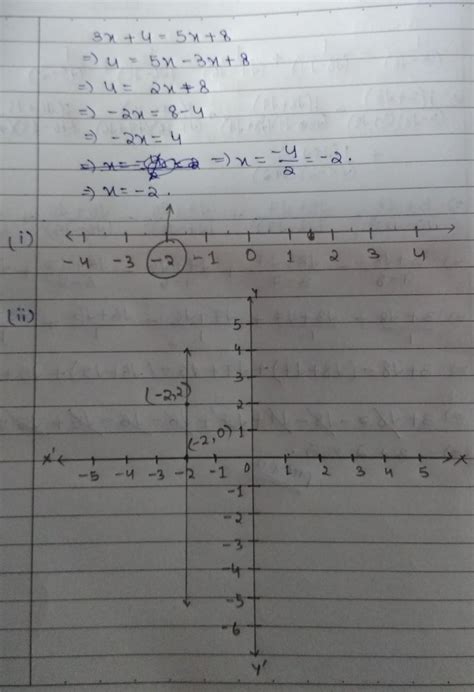 3x + 4 = 5x + 8
⇒ 4 = 5x - 3x + 8
⇒ 4 = 2x + 8
⇒ -2x = 8 - 4
⇒ -2x = 4
⇒ x = ⇒ x = -4/2 = -2.
⇒ x = -2.
(i)
-4 -3 -2 -1 0 1 2 3 4
(ii)
Y
5
4
3
(-2,2)
2
(-2,0)
1
X' X
-5 -4 -3 -2 -1 0 1 2 3 4 5
-1
-2
-3
-4
-5
-6
Y'